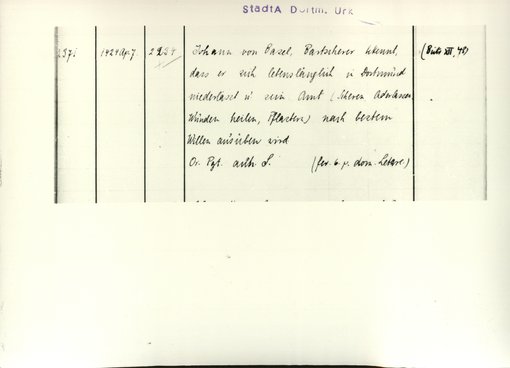 StadtA Dortm. Urk
1424 Ap. 7.
Johann von Basel, Bartscherer bekennt,
dass er sich lebenslänglich in Dortmund
niederlässt u. sein Amt (scheren Aderlassen
Wunden heilen, Pflastern) nach bestem
Willen ausüben wird
Or. Pgt. anh. S. (fer. 6. p. dom. Letare.)